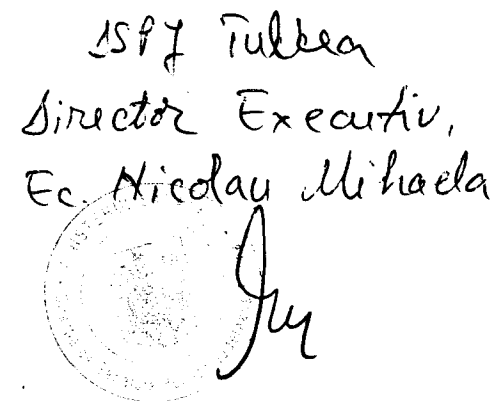 DSPJ Tulcea
Director Executiv,
Ec. Nicolau Mihaela